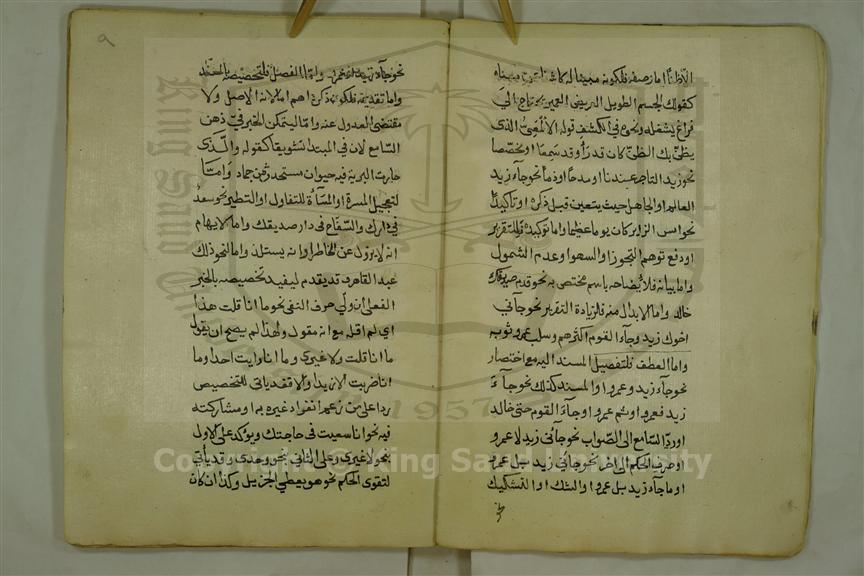 الا ظنا اما وصفه فلكونه مبينا له كاشفا عن معناه
كقولك الجسم الطويل العريض العميق يحتاج الى
فراغ يشغله ونحوه في الكشف قوله الالمعي الذى
يظن بك الظن كان قد رأى وقد سمعا او مخصصا
نحو زيد التاجر عندنا او مدحا او ذما نحو جاءنى زيد
العالم او الجاهل حيث يتعين قبل ذكره او تاكيدا
نحو امس الدابر كان يوما عظيما واما توكيده فللتقرير
او دفع توهم التجوز او السهو او عدم الشمول
واما بيانه فلايضاحه باسم مختص به نحو قدم صديقك
خالد واما الابدال منه فلزيادة التقرير نحو جاءنى
اخوك زيد وجاء القوم اكثرهم وسلب عمرو ثوبه
واما العطف فلتفصيل المسند اليه مع اختصار
نحو جاءنى زيد وعمرو او المسند كذلك نحو جاءنى
زيد فعمرو او ثم عمرو او جاءنى القوم حتى خالد
او رد السامع الى الصواب نحو جاءنى زيد لا عمرو
او صرف الحكم الى اخر نحو جاءنى زيد بل عمرو
او ما جاءنى زيد بل عمرو او الشك او التشكيك
نحو
٩
نحو جاءنى زيد او عمرو واما الفصل فلتخصيصه بالمسند
واما تقديمه فلكون ذكره اهم اما لانه الاصل ولا
مقتضى للعدول عنه واما ليتمكن الخبر فى ذهن
السامع لان فى المبتدا تشويقا كقوله والذى
حارت البرية فيه حيوان مستحدث من جماد واما
لتعجيل المسرة او المساءة للتفاول او التطير نحو سعد
فى دارك والسفاح فى دار صديقك واما لايهام
انه لا يزول عن الخاطر او انه يستلذ واما لنحو ذلك
عبد القاهر وقد يقدم ليفيد تخصيصه بالخبر
الفعلى ان ولى حرف النفى نحو ما انا قلت هذا
اى لم اقله مع انه مقول ولهذا لم يصح ان يقول
ما انا قلت ولا غيرى وما انا رايت احدا وما
انا ضربت الا زيدا والا فقد ياتى للتخصيص
ردا على من زعم انفراد غيره به او مشاركته
فيه نحو انا سعيت فى حاجتك ويؤكد على الاول
بنحو لا غيرى وعلى الثانى بنحو وحدى وقد يأتى
لتقوى الحكم نحو هو يعطى الجزيل وكذا ان كان
King Saud University
1957
Copyright © King Saud University